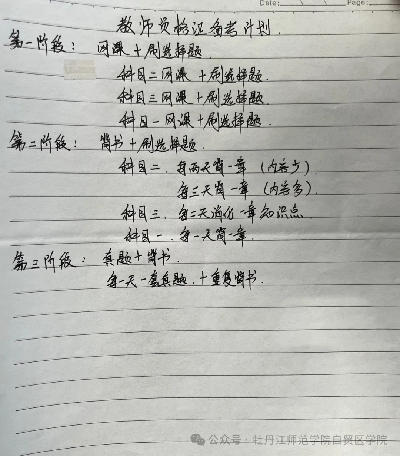 Date: Page:
教师资格证备考计划.
第一阶段：网课+刷选择题
科目二网课+刷选择题.
科目三网课+刷选择题
科目一网课+刷选择题.
第二阶段：背书+刷选择题.
科目二：每两天背一章（内容少）
每三天背一章（内容多）.
科目三.每二天消化一章知识点
科目一.每一天背一章.
第三阶段：真题+背书.
每一天一套真题.+重复背书.
公众号·牡丹江师范学院自贸区学院